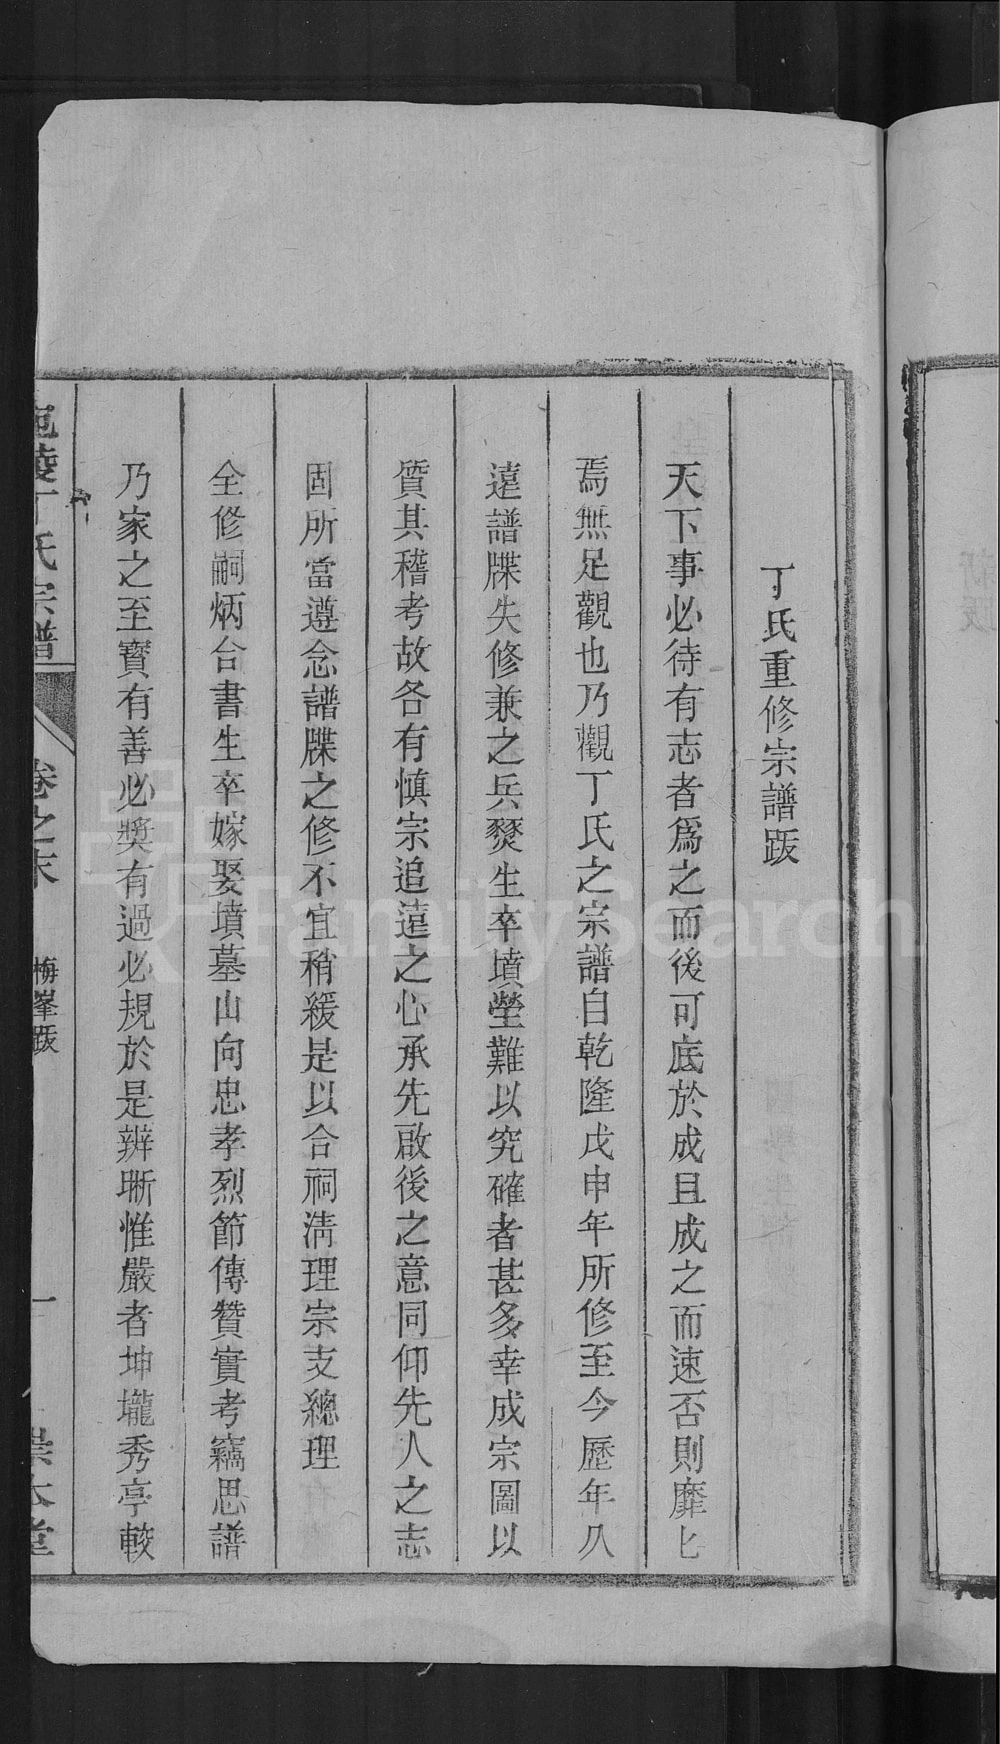 丁氏重修宗譜跋
天下事必待有志者爲之而後可底於成且成之而速否則靡匕
焉無足觀也乃觀丁氏之宗譜自乾隆戊申年所修至今歷年久
遠譜牒失修兼之兵燹生卒墳塋難以究確者甚多幸成宗圖以
質其稽考故各有慎宗追遠之心承先啟後之意同仰先人之志
固所當遵念譜牒之修不宜稍緩是以合祠清理宗支總理
全修嗣炳台書生卒嫁娶墳墓山向忠孝烈節傳贊實考竊思譜
乃家之至寶有善必奬有過必規於是辨晰惟嚴者坤壠秀亭較
宛陵丁氏宗譜
卷之末
梅峯跋
一
崇本堂
FamilySearch